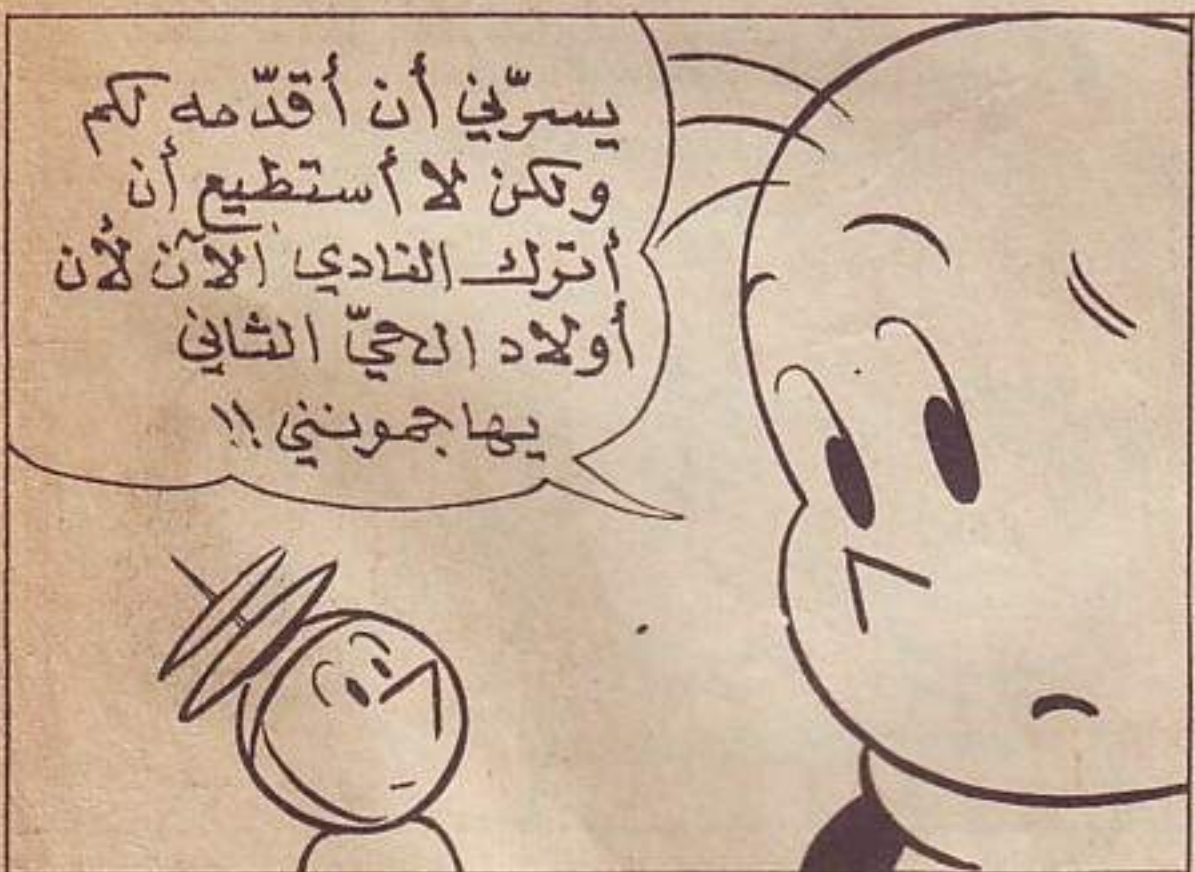 يسرّني أن أقدّمه لكم
ولكن لا أستطيع أن
أترك النادي الآن لأن
أولاد الحيّ الثاني
يهاجمونني !!